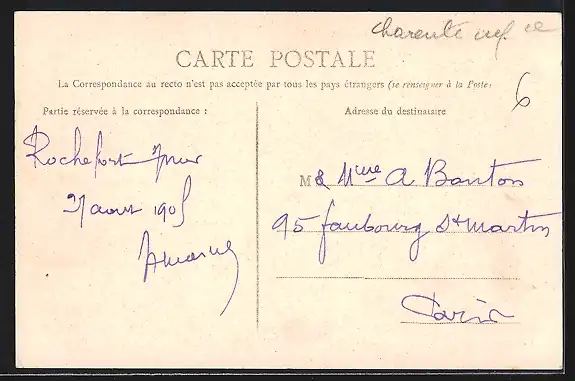 charente inf.
CARTE POSTALE
La Correspondance au recto n'est pas acceptée par tous les pays étrangers (se renseigner à la Poste)
6
Partie réservée à la correspondance :
Adresse du destinataire
Rochefort
M & Mme A Banton
27 aout 1905
95 faubourg St Martin
Paris